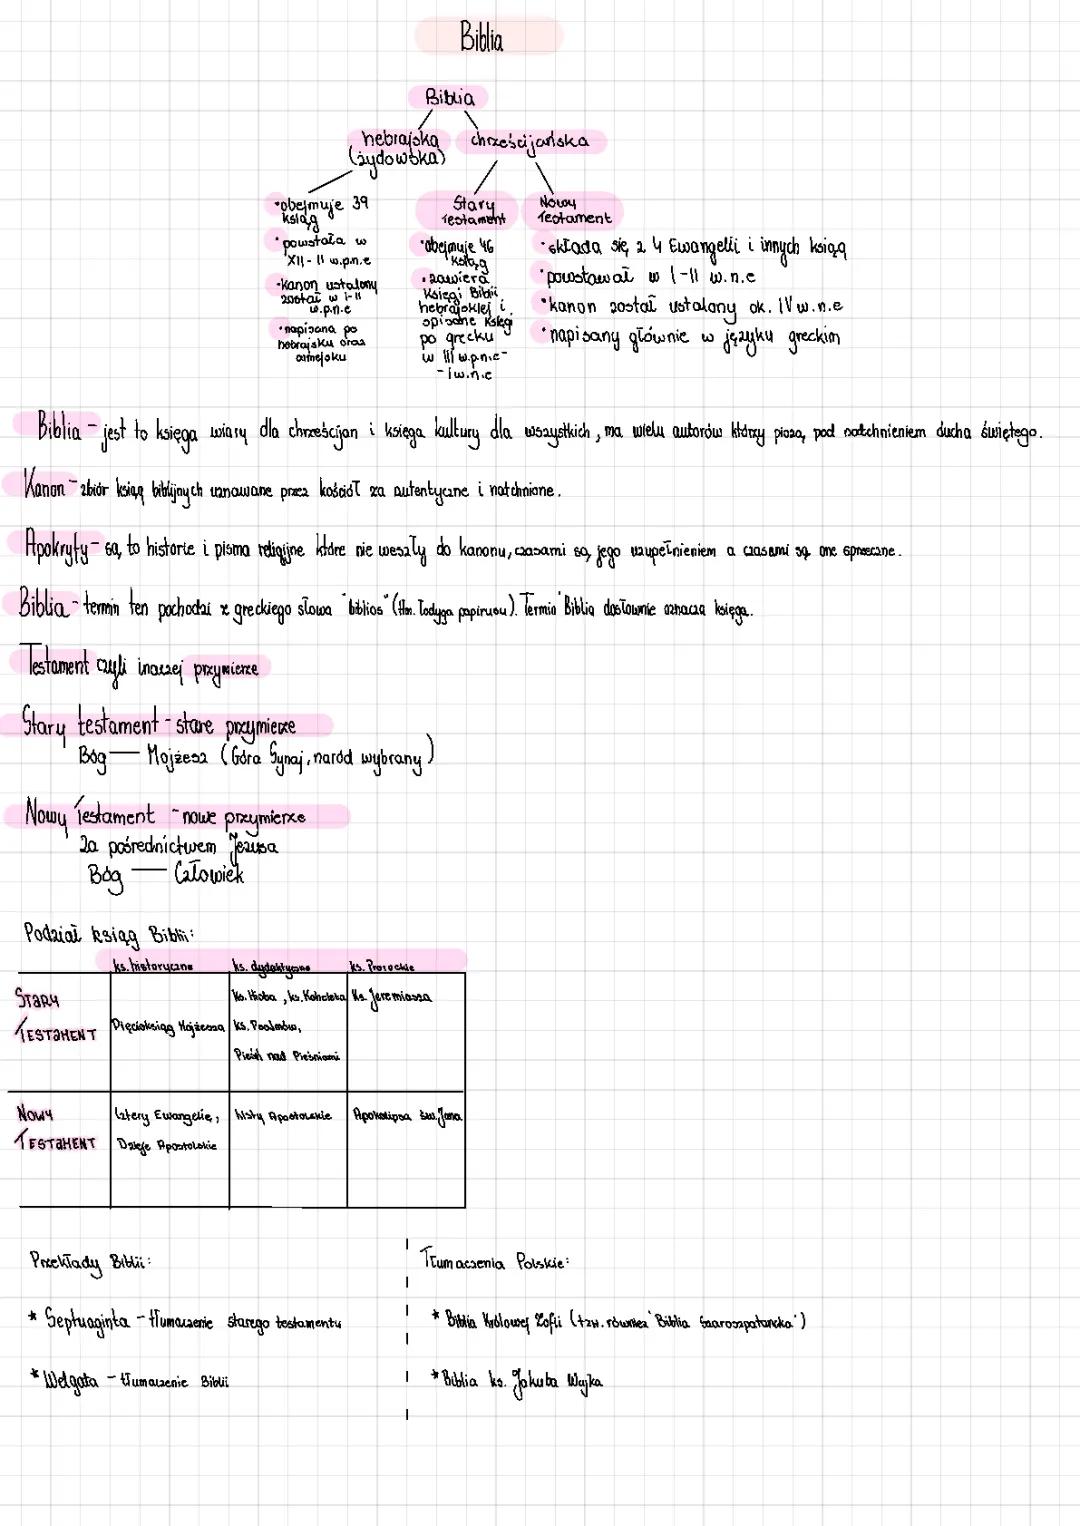 Biblia
Biblia
hebrajska
(żydowska)
chrześcijańska
•obejmuje 39
ksiąg
•powstała w
XII-II w.p.n.e
•kanon ustalony
został w I-II
w.p.n.e
•napisana po
hebrajsku oraz
Stary
Testament
•obejmuje 46
ksiąg
•zawiera
Księgi Biblii
hebrajskiej i
spisane księgi
po grecku
w III w.p.n.e-
-I w.n.e
Nowy
Testament
•składa się z 4 Ewangelii i innych ksiąg
•powstawał w I-II w.n.e
•kanon został ustalony ok. IV w.n.e
•napisany głównie w języku greckim
Biblia - jest to księga wiary dla chrześcijan i księga kultury dla wszystkich, ma wielu autorów którzy piszą pod natchnieniem ducha świętego.
Kanon - zbiór ksiąg biblijnych uznawane przez kościół za autentyczne i natchnione.
Apokryfy - są to historie i pisma religijne które nie weszły do kanonu, czasami są jego uzupełnieniem a czasami są one sprzeczne.
Biblia - termin ten pochodzi z greckiego słowa "biblios" (tłm. łodyga papirusu). Termin 'Biblia dosłownie oznacza księga.
Testament czyli inaczej przymierze
Stary testament - stare przymierze
Bóg — Mojżesz (Góra Synaj, naród wybrany)
Nowy Testament - nowe przymierze
za pośrednictwem Jezusa
Bóg — Człowiek
Podział ksiąg Biblii:
ks. historyczne ks. dydaktyczne ks. Prorockie
STARY
TESTAMENT
Pięcioksiąg Mojżesza
Ks. Hioba, ks. Koheleta
ks. Psalmów,
Pieśń nad Pieśniami
Ks. Jeremiasza
NOWY
TESTAMENT
Cztery Ewangelie,
Dzieje Apostolskie
listy Apostolskie
Apokalipsa św. Jana
Przekłady Biblii:
* Septuaginta - tłumaczenie starego testamentu
* Welgata - tłumaczenie Biblii
Tłumaczenia Polskie:
* Biblia Królowej Zofii (tzw. również 'Biblia Szaroszpatancka')
* Biblia ks. Jakuba Wujka